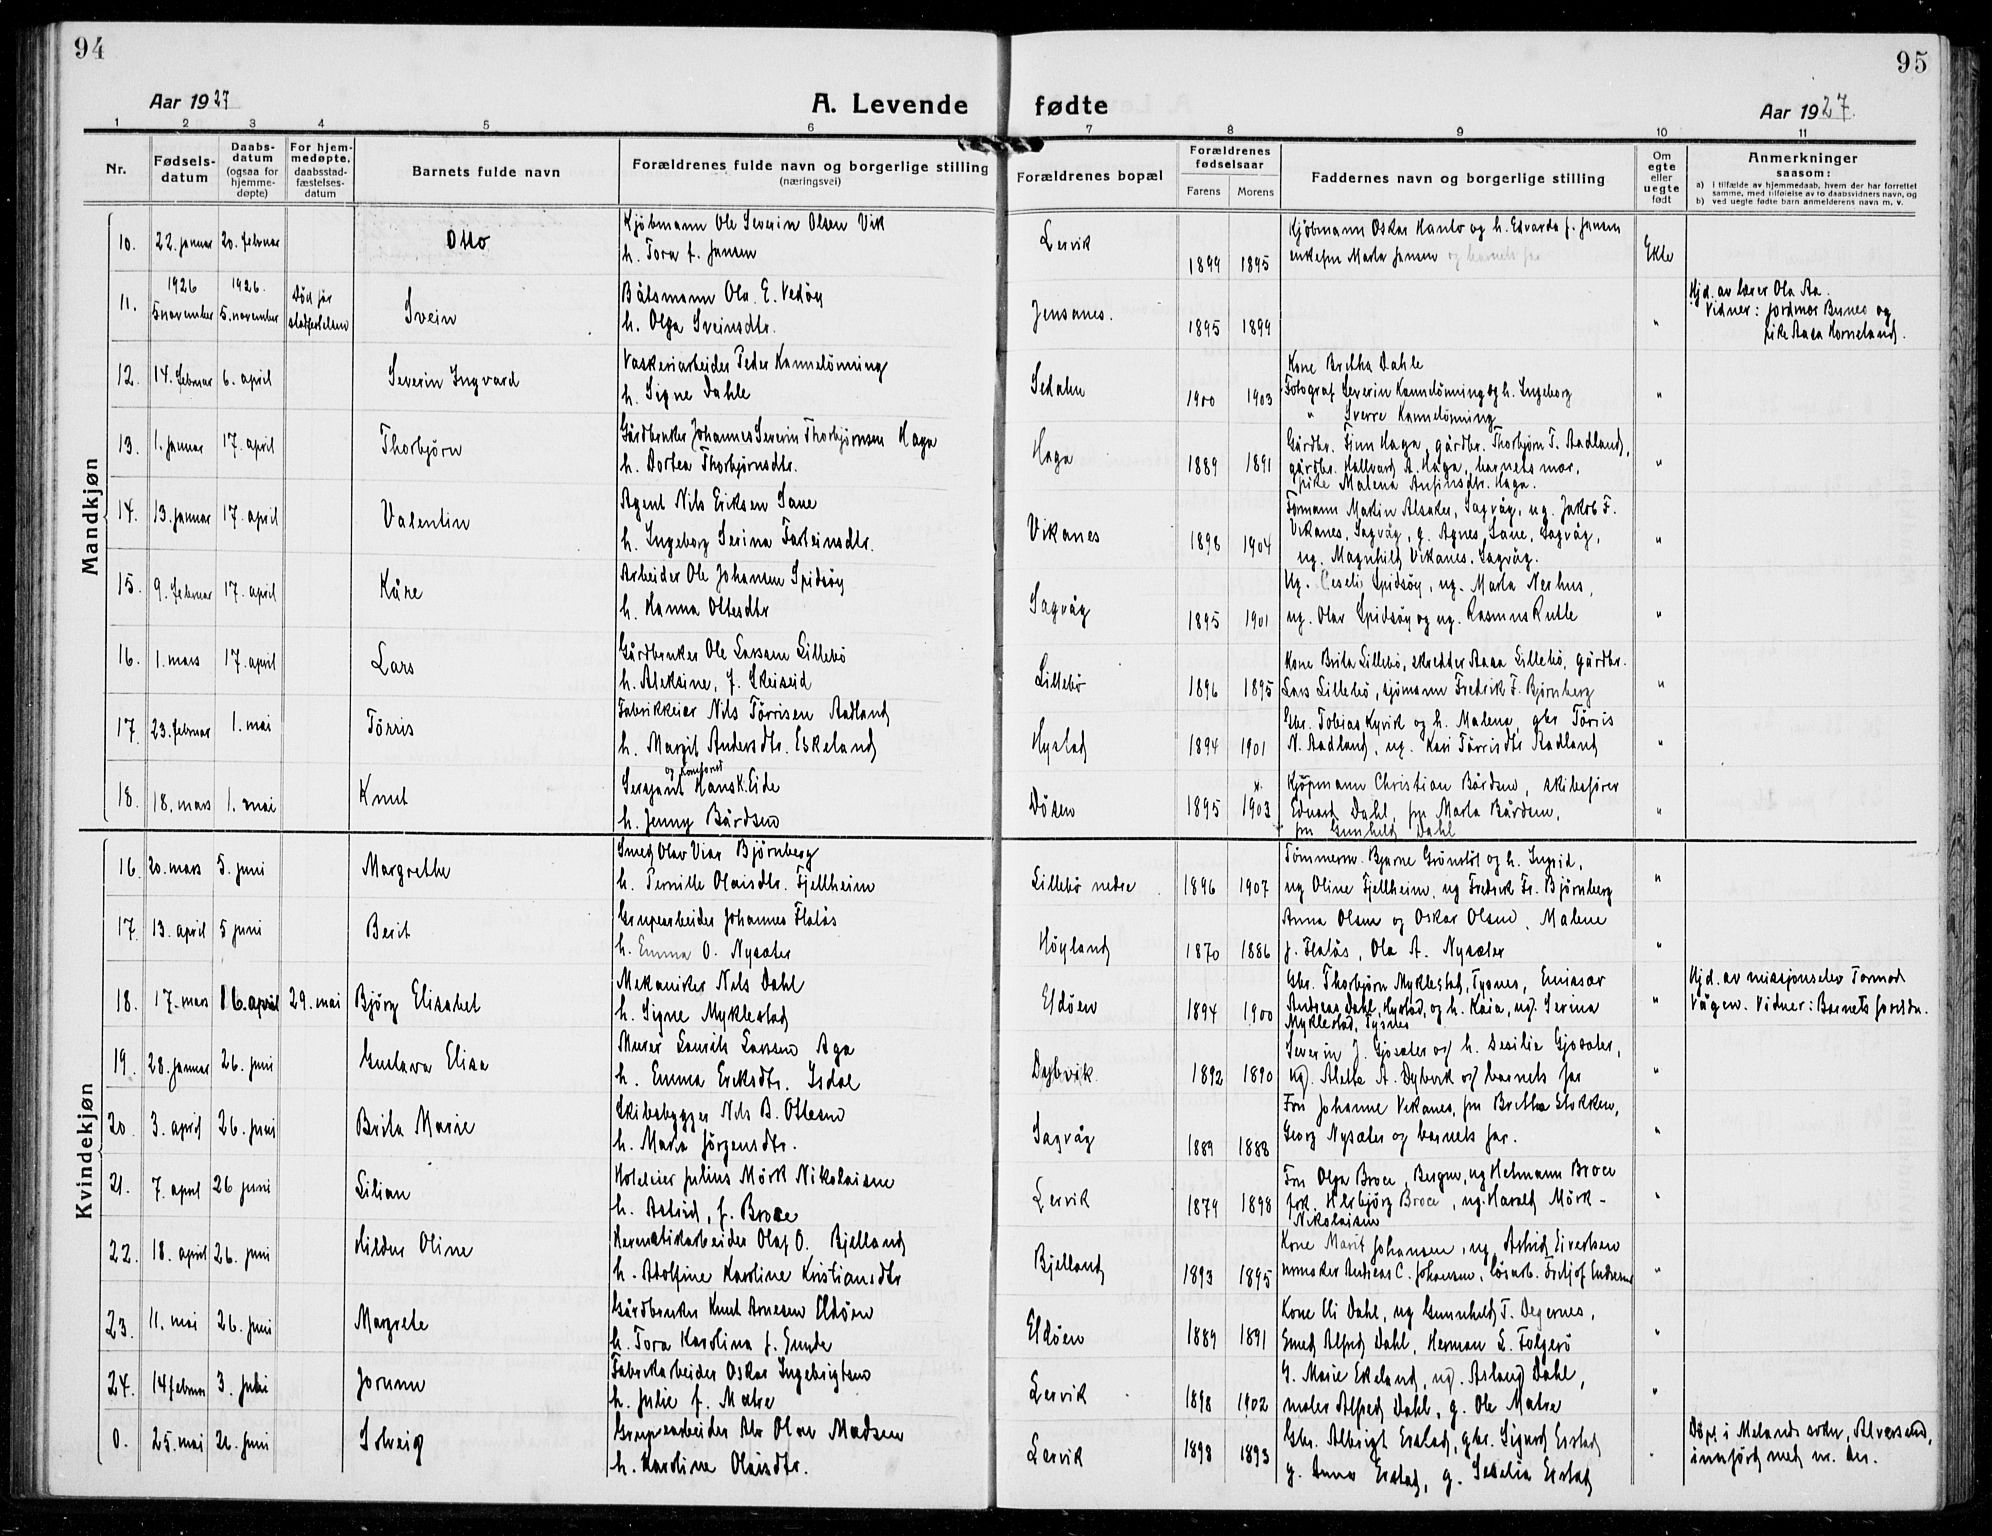 94
95
Aar 1927
A. Levende fødte
Aar 1927.
1 2 3 4 5 6 7 8 9 10 11
Nr.
Fødsels-
datum
Daabs-
datum
(ogsaa for
hjemme-
døpte)
For hjem-
medøpte,
daabsstad-
fæstelses-
datum
Barnets fulde navn
Forældrenes fulde navn og borgerlige stilling
(næringsvei)
Forældrenes bopæl
Forældrenes
fødselsaar
Farens Morens
Faddernes navn og borgerlige stilling
Om
egte
eller
uegte
født
Anmerkninger
saasom:
a) i tilfælde av hjemmedaab, hvem der har forrettet
samme, med tilføielse av to daabsvidners navn, og
b) ved uegte fødte barn anmelderens navn m. v.
Mandkjøn
10. 22. januar 20. februar Otto
Kjøbmann Ole Severin Olsen Vik
h. Tora f. Jansen
Lervik 1899 1895
Kjøbmann Oskar og h. Edvarda f. Jansen
enkefru Marta Jansen og barnets far
Ekte
11. 1926 5 november 1926. 5. november Død før
Svein
Båtsmann Ola E. Vedøy
h. Olga Sveinsdtr.
Jensanes. 1895 1899 "
Hjd. av lærer Ola Aa.
Vidner: jordmor Bunes og
pike Aasa Horneland.
12. 14. februar 6. april Severin Ingvard
Vaskeriarbeider Peder Kannelønning
h. Signe Dahle
Sedalen 1900 1903
Kone Bertha Dahle
Fotograf Severin Kannelønning og h. Ingeborg
" Sverre Kannelønning
"
13. 1. januar 17. april Thorbjørn
Gårdbruker Johannes Severin Thorbjørnsen Haga
h. Dortea Thorbjørnsdtr.
Haga 1889 1891
Gårdbr. Finn Haga, gårdbr. Thorbjørn T. Aadland,
gårdbr. Hallvard A. Haga, barnets mor,
pike Malena Ansinsdtr. Haga.
"
14. 13. januar 17. april Valentin
Agent Nils Eriksen Sane
h. Ingeborg Serina Farteinsdtr.
Vikanes 1898 1904
Formann Martin Alsaker, Sagvåg, ug. Jakob F.
Vikanes, Sagvåg, g. Agnes Sane, Sagvåg,
ug. Magnhild Vikanes, Sagvåg.
"
15. 9. februar 17. april Kåre
Arbeider Ole Johansen Spidsøy
h. Hanna Ottesdtr
Sagvåg 1895 1901
Ug. Cecelie Spidsøy, ug. Marta Nerhus,
ug. Olav Spidsøy og ug. Rasmus Rutle
"
16. 1. mars 17. april Lars
Gårdbruker Ole Larsen Lillebø
h. Aleksine, f. Skeiseid
Lillebø 1896 1895
Kone Brita Lillebø, skredder Aasa Lillebø, gårdbr.
Lars Lillebø, sjømann Fredrik F. Bjørnberg
"
17. 23. februar 1. mai Tørris
Fabrikkeier Nils Tørrisen Aadland
h. Margit Andersdtr. Eskeland
Hystad 1894 1901
Gbr. Tobias Kyvik og h. Malena, gbr Tørris
N. Aadland, ug. Kari Tørrisdtr Aadland
"
18. 18. mars 1. mai Knut
Sersjant og kontorist Hans K. Eide
h. Jenny Bårdsen
Døsen 1895 1903
Kjøpmann Christian Bårdsen, skibsfører
Edvard Dahl, fru Marta Bårdsen,
fru Gunhild Dahl
"
Kvindekjøn
16. 20. mars 5. juni Margrethe
Smed Olav Viar Bjørnberg
h. Pernille Olaisdtr. Fjellheim
Lillebø nedre 1896 1907
Tømmerm. Bjarne Grønstøl og h. Ingrid,
ug Oline Fjellheim, ug Fredrik Fr. Bjørnberg
"
17. 13. april 5 juni Berit
Grupearbeider Johannes Flatås
h. Emma O. Nysæter
Høyland 1870 1886
Anna Olsen og Oskar Olsen, Malene
J. Flatås, Ola A. Nysæter
"
18. 17. mars 16. april 29. mai Bjørg Elisabet
Mekaniker Nils Dahl
h. Signe Myklestad
Eldøen 1894 1900
Gbr. Thorbjørn Myklestad, Tysnes, Emissær
Andreas Dahl, Hystad, og h. Kaia, ug. Serina
Myklestad, Tysnes
"
Hjd. av misjonselev Tormod
Vågen. Vidner: Barnets foreldre.
19. 28. januar 26. juni Gustava Elisa
Murer Laurits Larsen Aga
h. Emma Eriksdtr. Isdal
Dybvik 1892 1890
Severin J. Gjøsæter og h. Sesilie Gjøsæter,
ug. Alette A. Dybvik og barnets far
"
20. 3. april 26. juni Brita Marie
Skibsbygger Nils B. Ottesen
h. Maria Jørgensdtr.
Sagvåg 1889 1888
Fru Johanne Vikanes, fru Bertha Stokken,
Georg Nysæter og barnets far.
"
21. 7. april 26 juni Lilian
Hoteleier Julius Mörk Nikolaisen
h. Astrid, f. Broce
Lervik 1879 1898
Fru Olga Broce, Bergen, ug Hermann Broce
frk. Herbjørg Broce, ug. Harald Mörk -
Nikolaisen
"
22. 18. april 26. juni Hildur Oline
Hermetikarbeider Olaf O. Bjelland
h. Adolfine Karoline Kristiansdtr
Bjelland 1893 1895
Kone Marit Johansen, ug. Astrid Eivertsen
urmaker Andreas C. Johansen, løsarb. Fridtjof Endresen
"
23. 11. mai 26. juni Margrete
Gårdbruker Knut Arnesen Eldøen
h. Tora Karolina f. Sunde
Eldøen 1889 1891
Kone Eli Dahl, ug Gunnhild T. Degernes,
Smed Alfred Dahl, Herman S. Folgerø
"
24. 14 februar 3. juli Jorunn
Fabrikarbeider Oskar Ingebrigtsen
h. Julie f. Matre
Lervik 1898 1902
G. Marie Eskeland, ug. Aslaug Dahl,
maler Alfred Dahl, g. Ole Matre
"
0. 25. mai 26. juni Solveig
Grupearbeider Olav Madsen
h. Karoline Olaisdtr.
Lervik 1898 1893
Gbr. Albrigt Erstad, gbr. Sigurd Erstad
g. Anna Erstad, g. Seselia Erstad
"
Døpt i Melands sokn, Alversund,
innførd med nr. der.